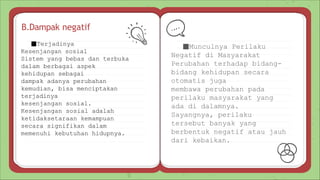 B.Dampak negatif
■Terjadinya
Kesenjangan sosial
Sistem yang bebas dan terbuka
dalam berbagai aspek
kehidupan sebagai
dampak adanya perubahan
kemudian, bisa menciptakan
terjadinya
kesenjangan sosial.
Kesenjangan sosial adalah
ketidaksetaraan kemampuan
secara signifikan dalam
memenuhi kebutuhan hidupnya.
■Munculnya Perilaku
Negatif di Masyarakat
Perubahan terhadap bidang-
bidang kehidupan secara
otomatis juga
membawa perubahan pada
perilaku masyarakat yang
ada di dalamnya.
Sayangnya, perilaku
tersebut banyak yang
berbentuk negatif atau jauh
dari kebaikan.